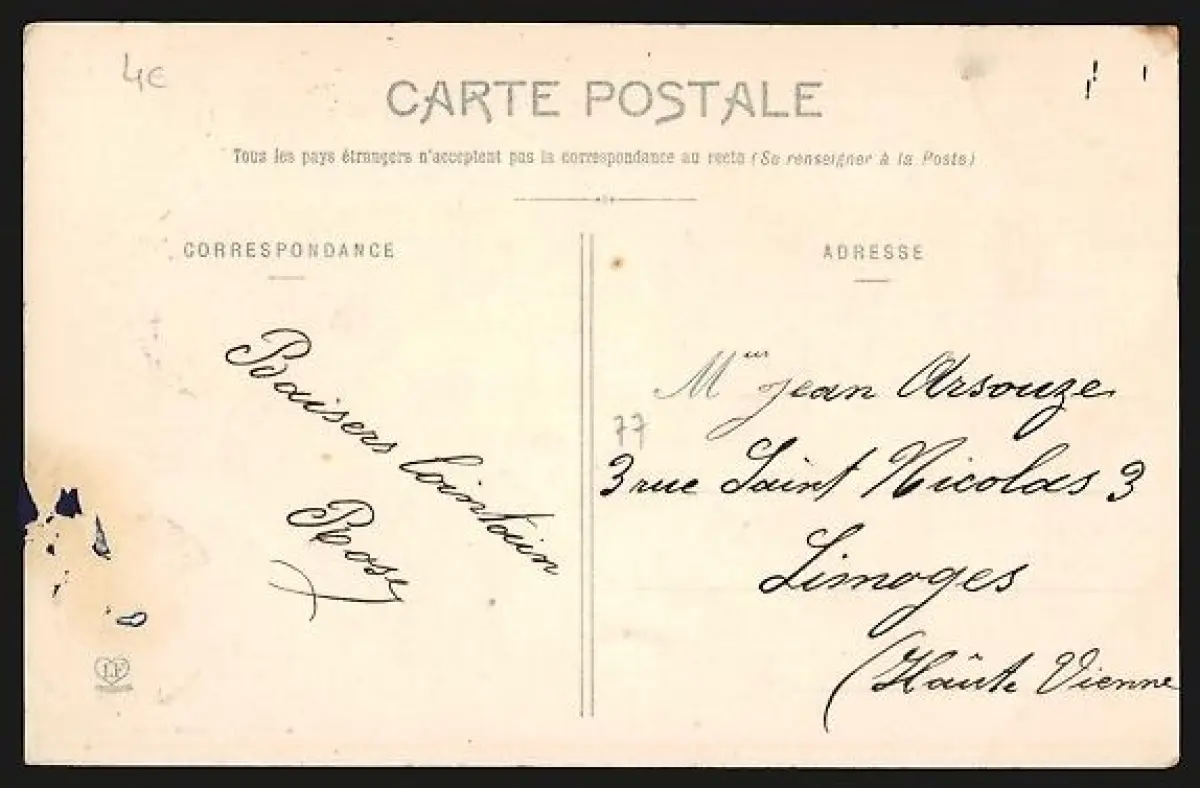 4€
CARTE POSTALE
Tous les pays étrangers n'acceptent pas la correspondance au recto (Se renseigner à la Poste)
CORRESPONDANCE
Baisers lointain
Rose
LF
ADRESSE
Meur Jean Arsouze
77
3 rue Saint Nicolas 3
Limoges
(Haûte Vienne